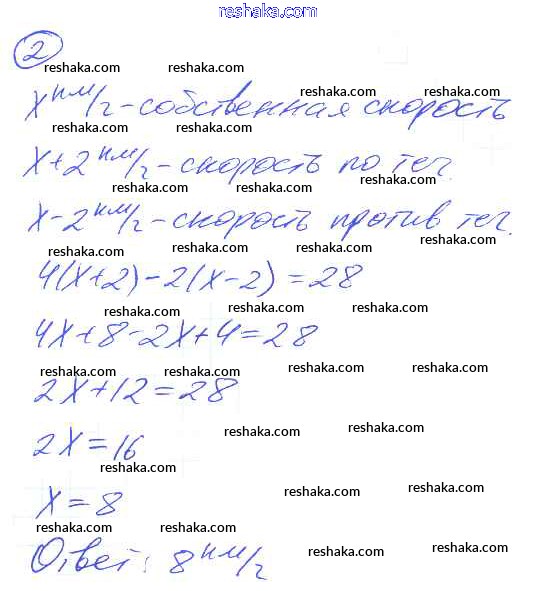 reshaka.com
2
reshaka.com reshaka.com
x км/г - собственная скорость
reshaka.com reshaka.com
x+2 км/г - скорость по теч.
reshaka.com reshaka.com
x-2 км/г - скорость против теч.
reshaka.com reshaka.com reshaka.com
4(x+2)-2(x-2)=28
reshaka.com reshaka.com reshaka.com
4x+8-2x+4=28
reshaka.com reshaka.com reshaka.com
reshaka.com reshaka.com
2x+12=28
reshaka.com reshaka.com
2x=16
reshaka.com
reshaka.com reshaka.com
x=8
reshaka.com reshaka.com
Ответ: 8 км/г
reshaka.com reshaka.com